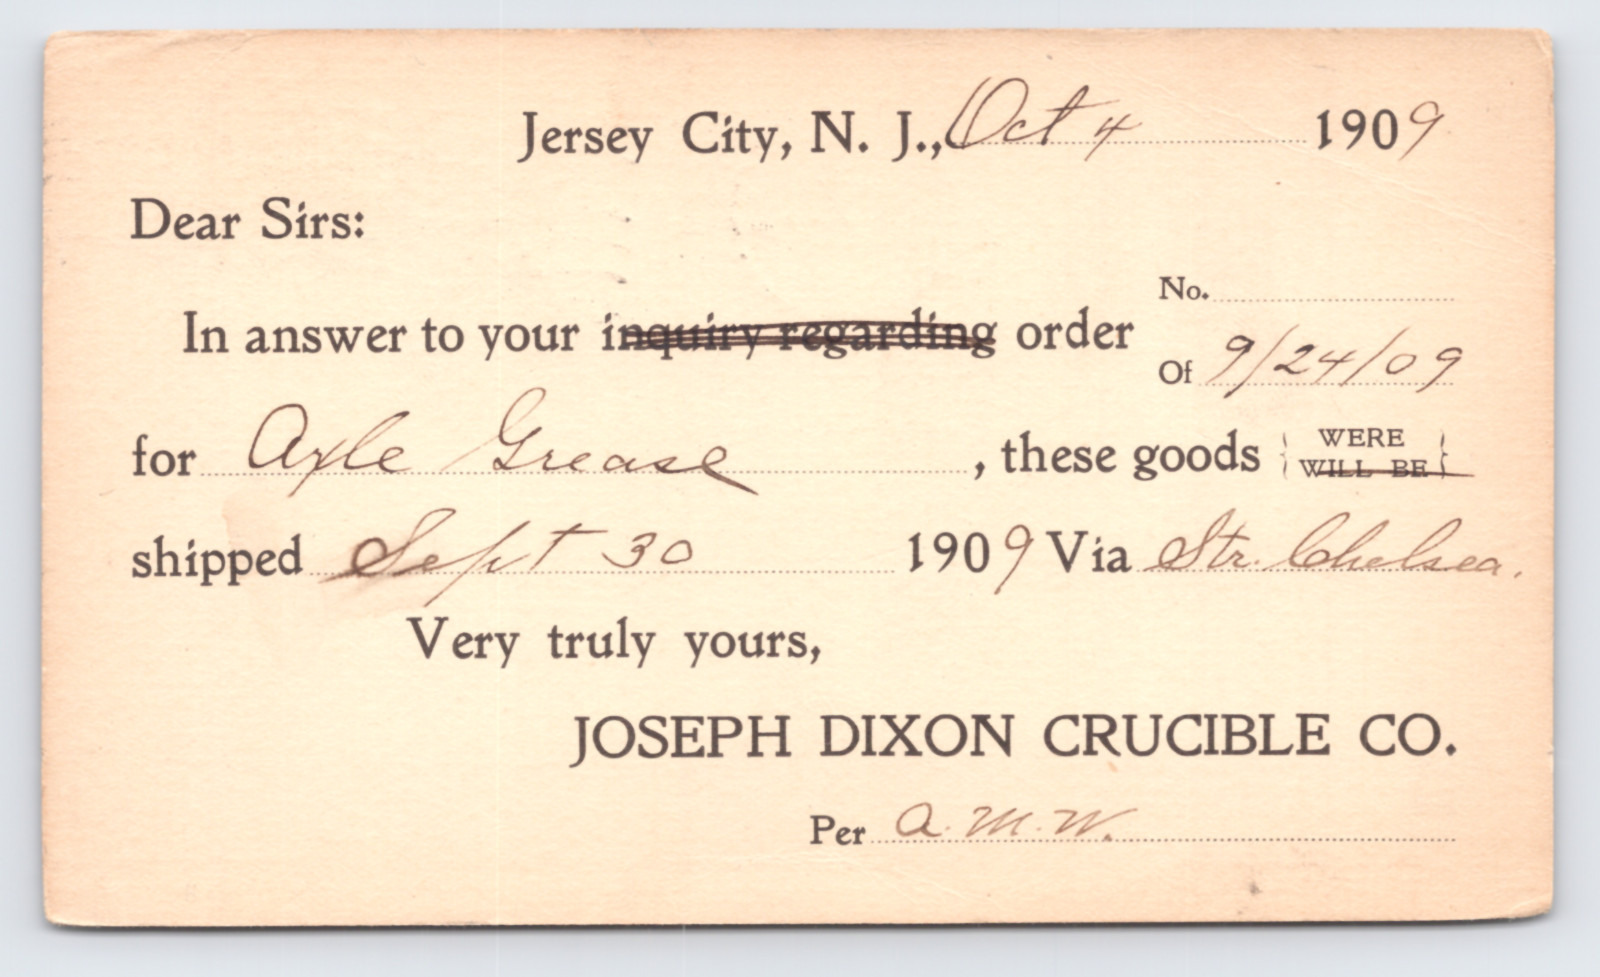 Jersey City, N. J., Oct 4 1909
Dear Sirs:
No.
In answer to your inquiry regarding order
Of 9/24/09
for Axle Grease, these goods { WERE
WILL BE }
shipped Sept 30 1909 Via Str. Chelsea.
Very truly yours,
JOSEPH DIXON CRUCIBLE CO.
Per A. M. W.